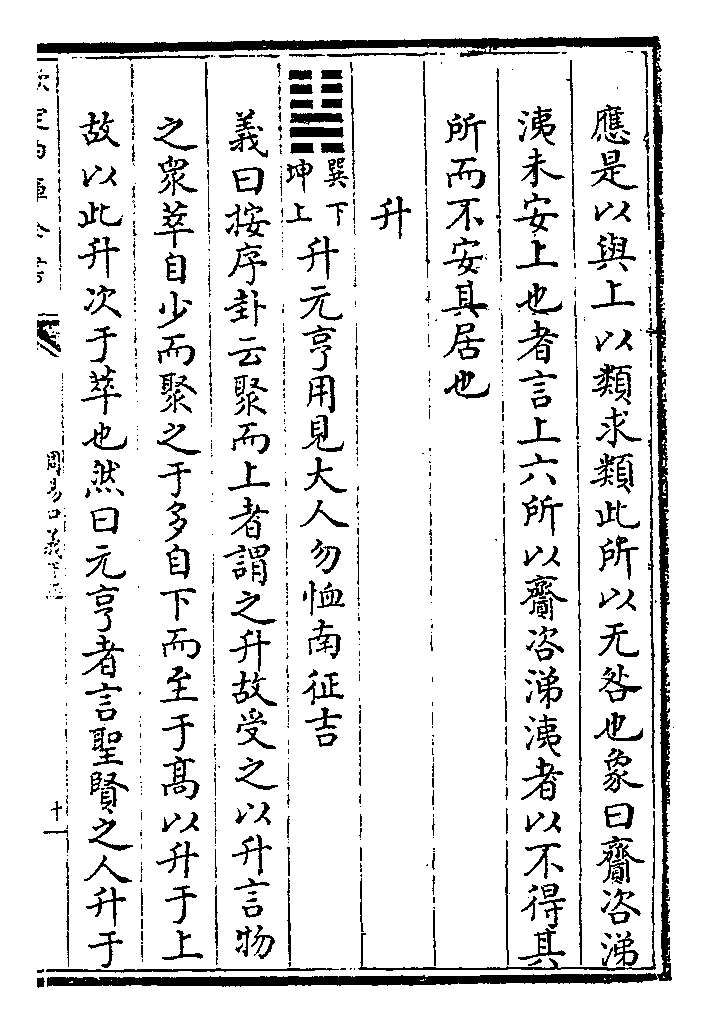 應是以與上以類求類此所以无咎也象曰齎咨涕
洟未安上也者言上六所以齎咨涕洟者以不得其
所而不安其居也
升
巽下
坤上
升元亨用見大人勿恤南征吉
義曰按序卦云聚而上者謂之升故受之以升言物
之衆萃自少而聚之于多自下而至于髙以升于上
故以此升次于萃也然曰元亨者言聖賢之人升于
欽定四庫全書
周易口義
十一